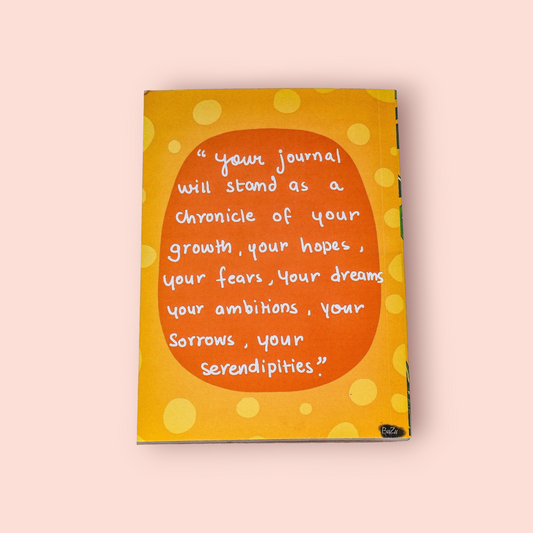 “ your journal
will stand as a
chronicle of your
growth, your hopes,
your fears, your dreams
your ambitions, your
sorrows, your
serendipities.”